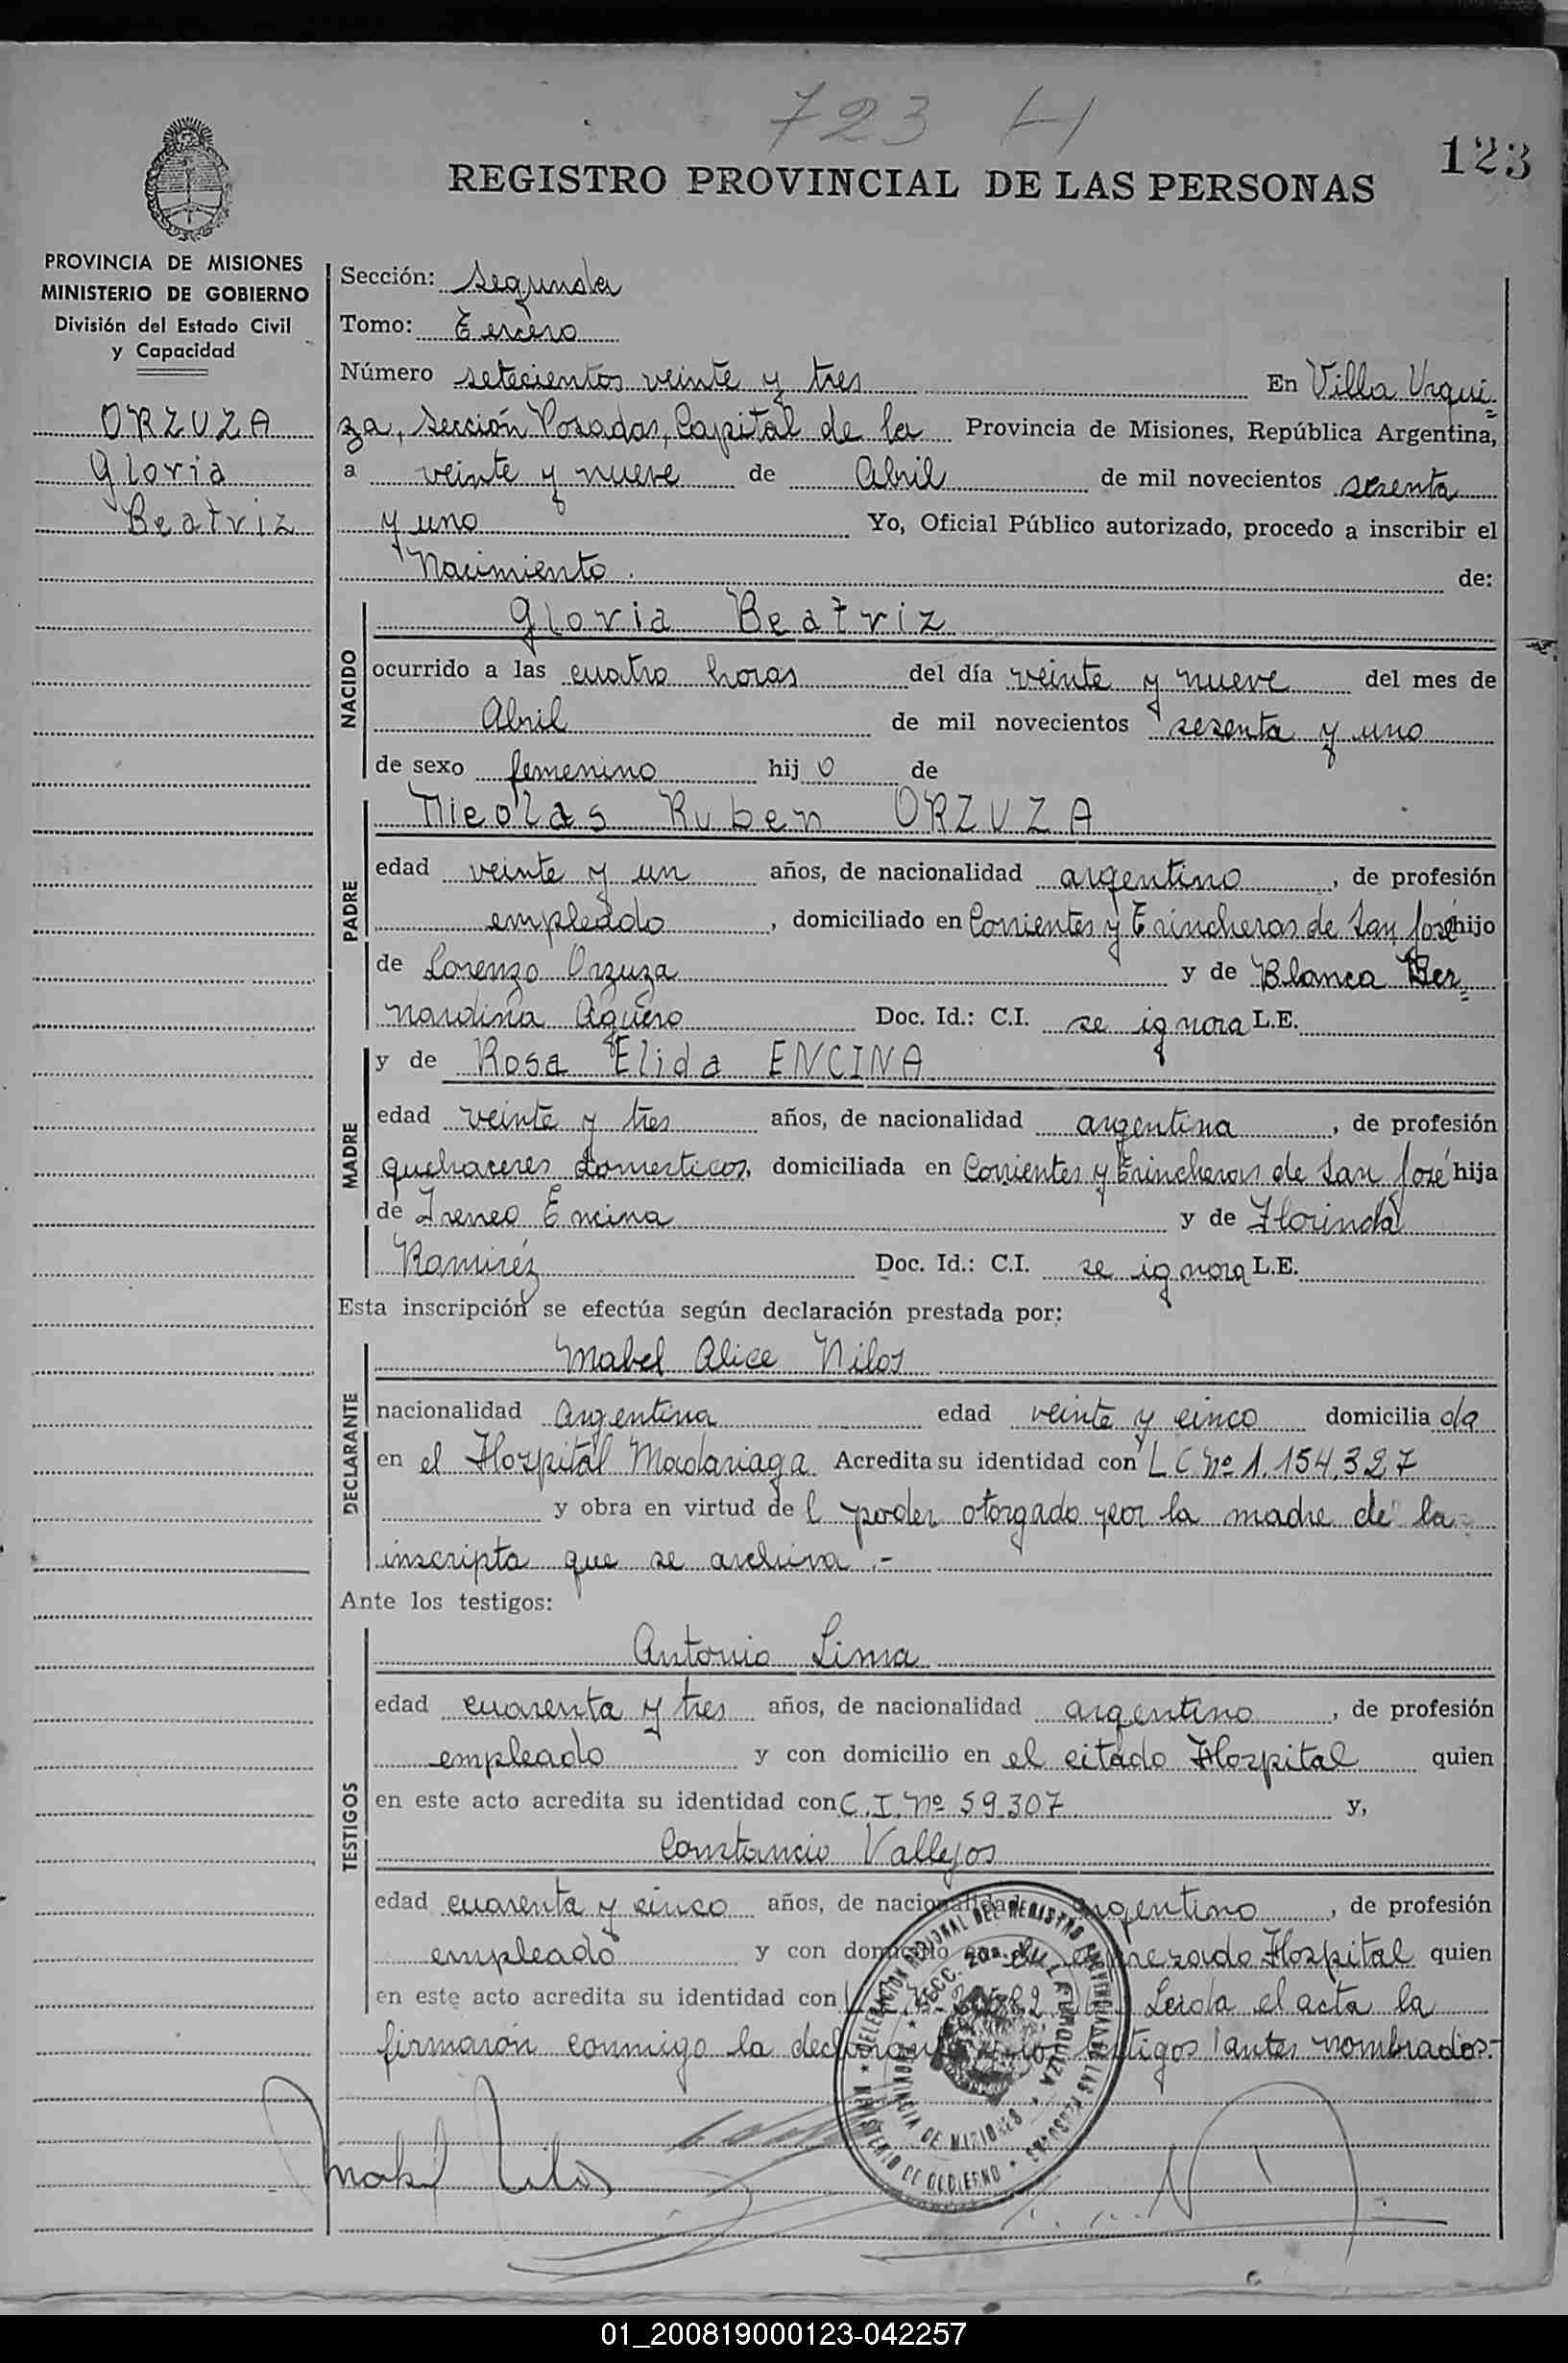 723
123
REGISTRO PROVINCIAL DE LAS PERSONAS
PROVINCIA DE MISIONES
MINISTERIO DE GOBIERNO
División del Estado Civil
y Capacidad
ORZUZA
Gloria
Beatriz
Sección: Segunda
Tomo: Tercero
Número setecientos veinte y tres En Villa Urqui=
za, Sección Posadas, Capital de la Provincia de Misiones, República Argentina,
a veinte y nueve de Abril de mil novecientos sesenta
y uno Yo, Oficial Público autorizado, procedo a inscribir el
Nacimiento. de:
NACIDO
Gloria Beatriz
ocurrido a las cuatro horas del día veinte y nueve del mes de
Abril de mil novecientos sesenta y uno
de sexo femenino hij o de
PADRE
Nicolas Ruben ORZUZA
edad veinte y un años, de nacionalidad argentino, de profesión
empleado, domiciliado en Corrientes y Trincheras de San José hijo
de Lorenzo Orzuza y de Blanca Ber=
nardina Aguero Doc. Id.: C.I. se ignora L.E.
MADRE
y de Rosa Elida ENCINA
edad veinte y tres años, de nacionalidad argentina, de profesión
quehaceres domesticos, domiciliada en Corrientes y Trincheras de San José hija
de Ireneo Encina y de Florinda
Ramiréz Doc. Id.: C.I. se ignora L.E.
Esta inscripción se efectúa según declaración prestada por:
DECLARANTE
Mabel Alice Nilos
nacionalidad Argentina edad veinte y cinco domicilia da
en el Hospital Madariaga Acredita su identidad con L C Nº 1.154.327
y obra en virtud de l poder otorgado por la madre de la
inscripta que se archiva.-
Ante los testigos:
TESTIGOS
Antonio Lima
edad cuarenta y tres años, de nacionalidad argentino, de profesión
empleado y con domicilio en el citado Hospital quien
en este acto acredita su identidad con C. I. Nº 59.307 y,
Constancio Vallejos
edad cuarenta y cinco años, de nacionalidad argentino, de profesión
empleado y con domicilio en el expresado Hospital quien
en este acto acredita su identidad con Leida el acta la
firmaron conmigo la declarante y los testigos antes nombrados.-
DELEGACION REGIONAL DEL REGISTRO PROVINCIAL DE LAS PERSONAS
MINISTERIO DE GOBIERNO
SECC. 20a. VILLA URQUIZA
PROVINCIA DE MISIONES
Mabel Nilos
01_200819000123-042257